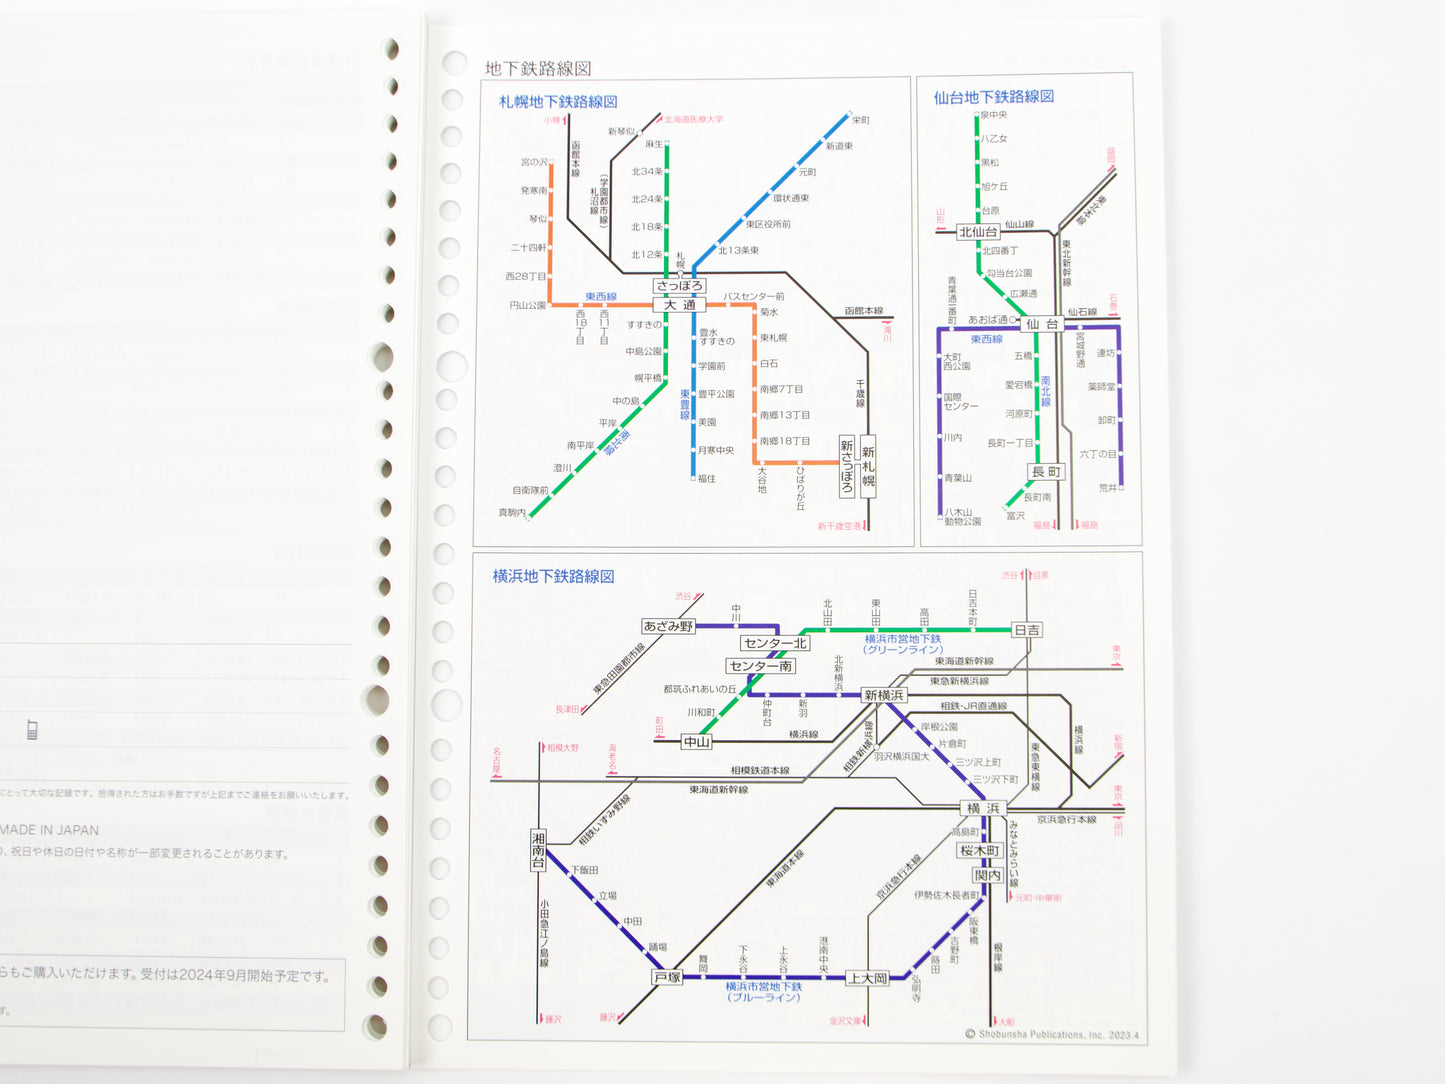 にとって大切な記録です。拾得された方はお手数ですが上記までご連絡をお願いいたします。
MADE IN JAPAN
り、祝日や休日の日付や名称が一部変更されることがあります。
らもご購入いただけます。受付は2024年9月開始予定です。
す。
地下鉄路線図
札幌地下鉄路線図
小樽
函館本線
新琴似
北海道医療大学
(学園都市線)
札沼線
麻生
北34条
北24条
北18条
北12条
札幌
さっぽろ
大通
栄町
新道東
元町
環状通東
東区役所前
北13条東
宮の沢
発寒南
琴似
二十四軒
西28丁目
円山公園
東西線
西18丁目
西11丁目
バスセンター前
菊水
東札幌
白石
南郷7丁目
南郷13丁目
南郷18丁目
大谷地
ひばりが丘
新さっぽろ
新札幌
函館本線
滝川
千歳線
新千歳空港
すすきの
中島公園
幌平橋
中の島
平岸
南平岸
南北線
澄川
自衛隊前
真駒内
豊水
すすきの
学園前
東豊線
豊平公園
美園
月寒中央
福住
仙台地下鉄路線図
泉中央
八乙女
黒松
旭ケ丘
台原
山形
北仙台
仙山線
盛岡
東北本線
東北新幹線
北四番丁
勾当台公園
広瀬通
青葉通一番町
あおば通
仙台
仙石線
石巻
東西線
大町
西公園
国際
センター
川内
青葉山
八木山
動物公園
五橋
愛宕橋
南北線
河原町
長町一丁目
長町
長町南
富沢
福島
福島
宮城野通
連坊
薬師堂
卸町
六丁の目
荒井
横浜地下鉄路線図
渋谷
あざみ野
東急田園都市線
長津田
中川
センター北
センター南
北山田
東山田
高田
日吉本町
日吉
渋谷
目黒
横浜市営地下鉄
(グリーンライン)
都筑ふれあいの丘
川和町
中山
町田
横浜線
仲町台
新羽
北新横浜
新横浜
東海道新幹線
東急新横浜線
東京
相鉄・JR直通線
相鉄新横浜線
羽沢横浜国大
岸根公園
片倉町
三ツ沢上町
三ツ沢下町
東急東横線
横浜線
新宿
東京
品川
京浜急行本線
名古屋
相模大野
海老名
相模鉄道本線
東海道新幹線
相鉄いずみ野線
湘南台
小田急江ノ島線
藤沢
下飯田
立場
中田
踊場
戸塚
藤沢
東海道本線
京浜急行本線
横浜
高島町
桜木町
関内
みなとみらい線
元町・中華街
伊勢佐木長者町
阪東橋
吉野町
蒔田
弘明寺
根岸線
大船
舞岡
下永谷
上永谷
港南中央
上大岡
横浜市営地下鉄
(ブルーライン)
金沢文庫
© Shobunsha Publications, Inc. 2023.4